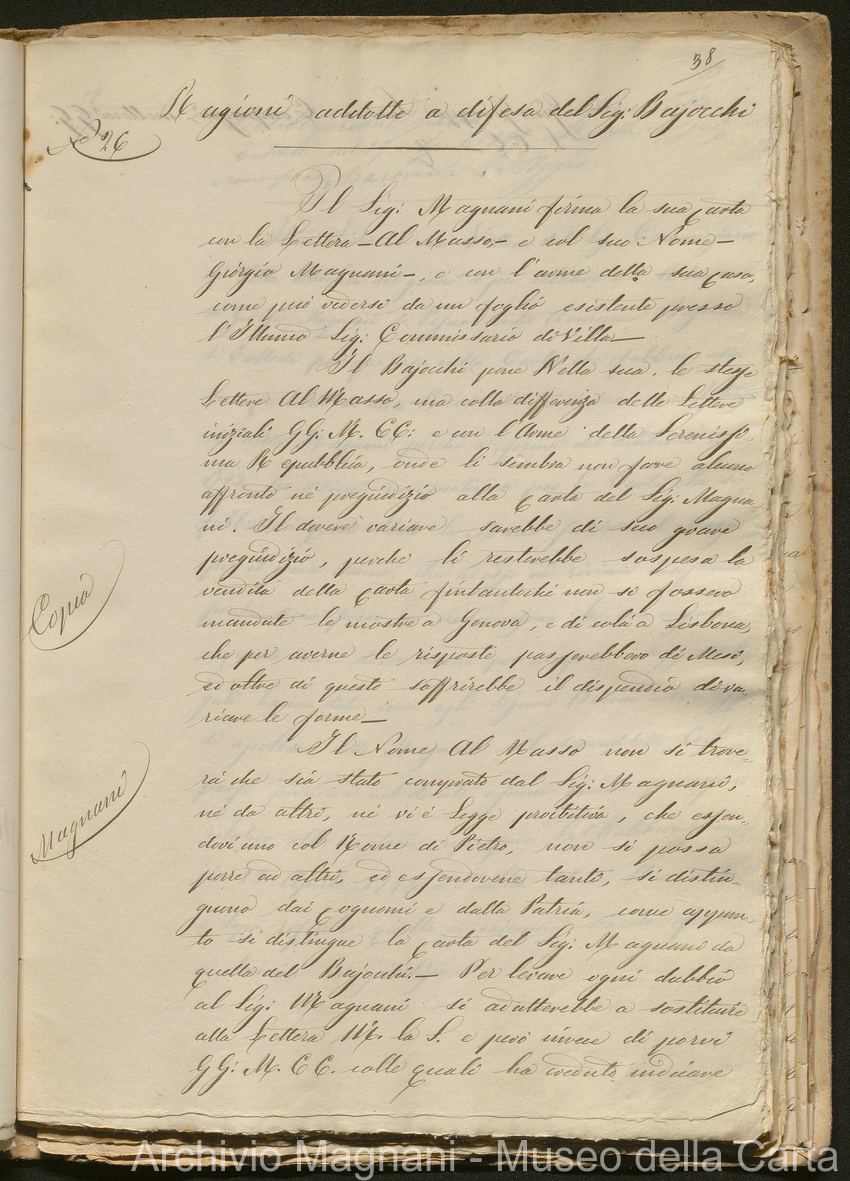 38
Ragioni addotte a difesa del Sig: Bajocchi
N.o 26
Il Sig: Magnani firma la sua Carta
con la Lettera – Al Masso, – e col suo Nome –
Giorgio Magnani –, e con l'arme della sua Casa,
come può vedersi da un foglio esistente presso
l'Illumo Sig: Commissario di Villa –
Il Bajocchi pone Nella sua, le stesse
Lettere Al Masso, ma colla differenza delle Lettere
iniziali GG: M. CC: e con l'Arme della Serenissi
ma Repubblica, onde li sembra non fare alcuno
affronto nè pregiudizio alla Carta del Sig: Magna-
ni. Il dovere variare sarebbe di suo grave
pregiudizio, perchè li resterebbe sospesa la
vendita della Carta fintantochi non si fossero
mandate le mostre a Genova, e di colà a Lisbona,
che per averne le risposte passerebbero di Mesi,
ed oltre di questo soffrirebbe il dispendio di va-
riare le forme –
Copia
Il Nome Al Masso non si trove-
rà che sia stato comprato dal Sig: Magnani,
nè da altri, nè vi è Legge proibitiva, che essen-
dovi uno col Nome di Pietro, non si possa
porre ad altri, ed essendovene tanti, si distin-
guono dai Cognomi e dalla Patria, come appun-
to si distingue la Carta del Sig: Magnani da
quella del Bajocchi. – Per levare ogni dubbio
al Sig: Magnani si adatterebbe a sostituire
alla Lettera M. la S. e però invece di porvi
GG: M. CC. colle quali ha creduto indicare
Magnani
Archivio Magnani - Museo della Carta